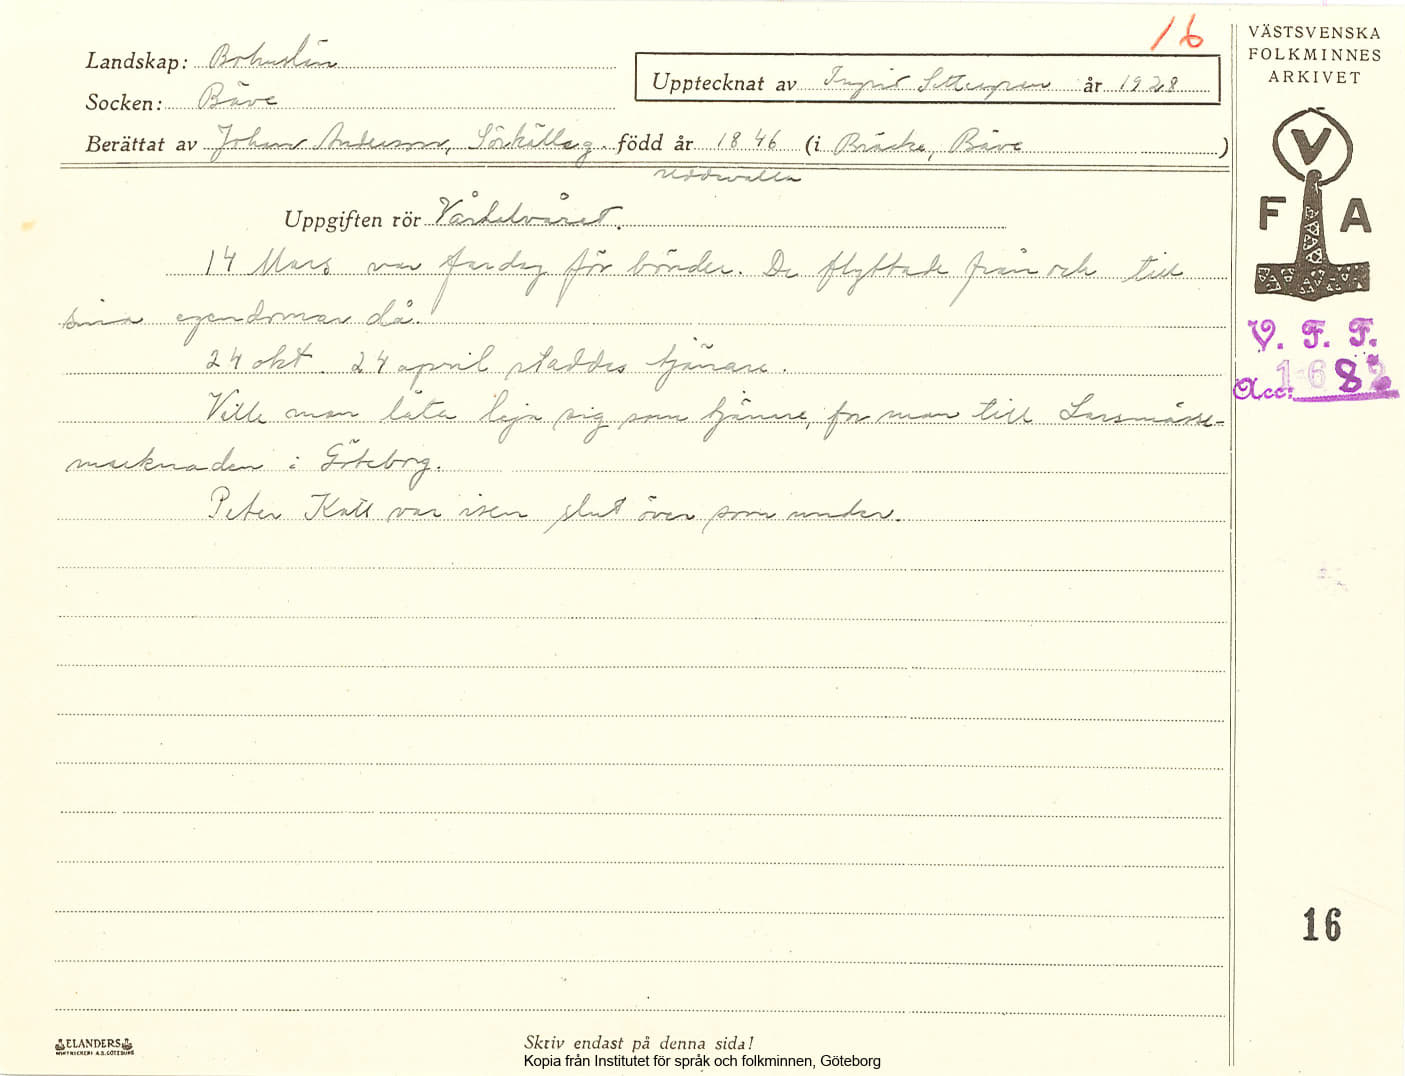 16
VÄSTSVENSKA
FOLKMINNES
ARKIVET
Landskap: Bohuslän
Upptecknat av Ingrid år 1928
Socken: Bäve
Berättat av Johan Andersson, född år 1846 (i Bräcke, Bäve)
Uddevalla
V
F A
Uppgiften rör Vårhalvåret.
14 Mars var fardag för bönder. De flyttade från och till
sina egendomar då.
24 okt. 24 april städdes tjänare.
Ville man låta leja sig som tjänare, for man till Larsmässe-
marknaden i Göteborg.
Peter Katt var isen slut över som under.
V. F. F.
Acc: 1682
16
ELANDERS
GÖTEBORG
Skriv endast på denna sida!
Kopia från Institutet för språk och folkminnen, Göteborg